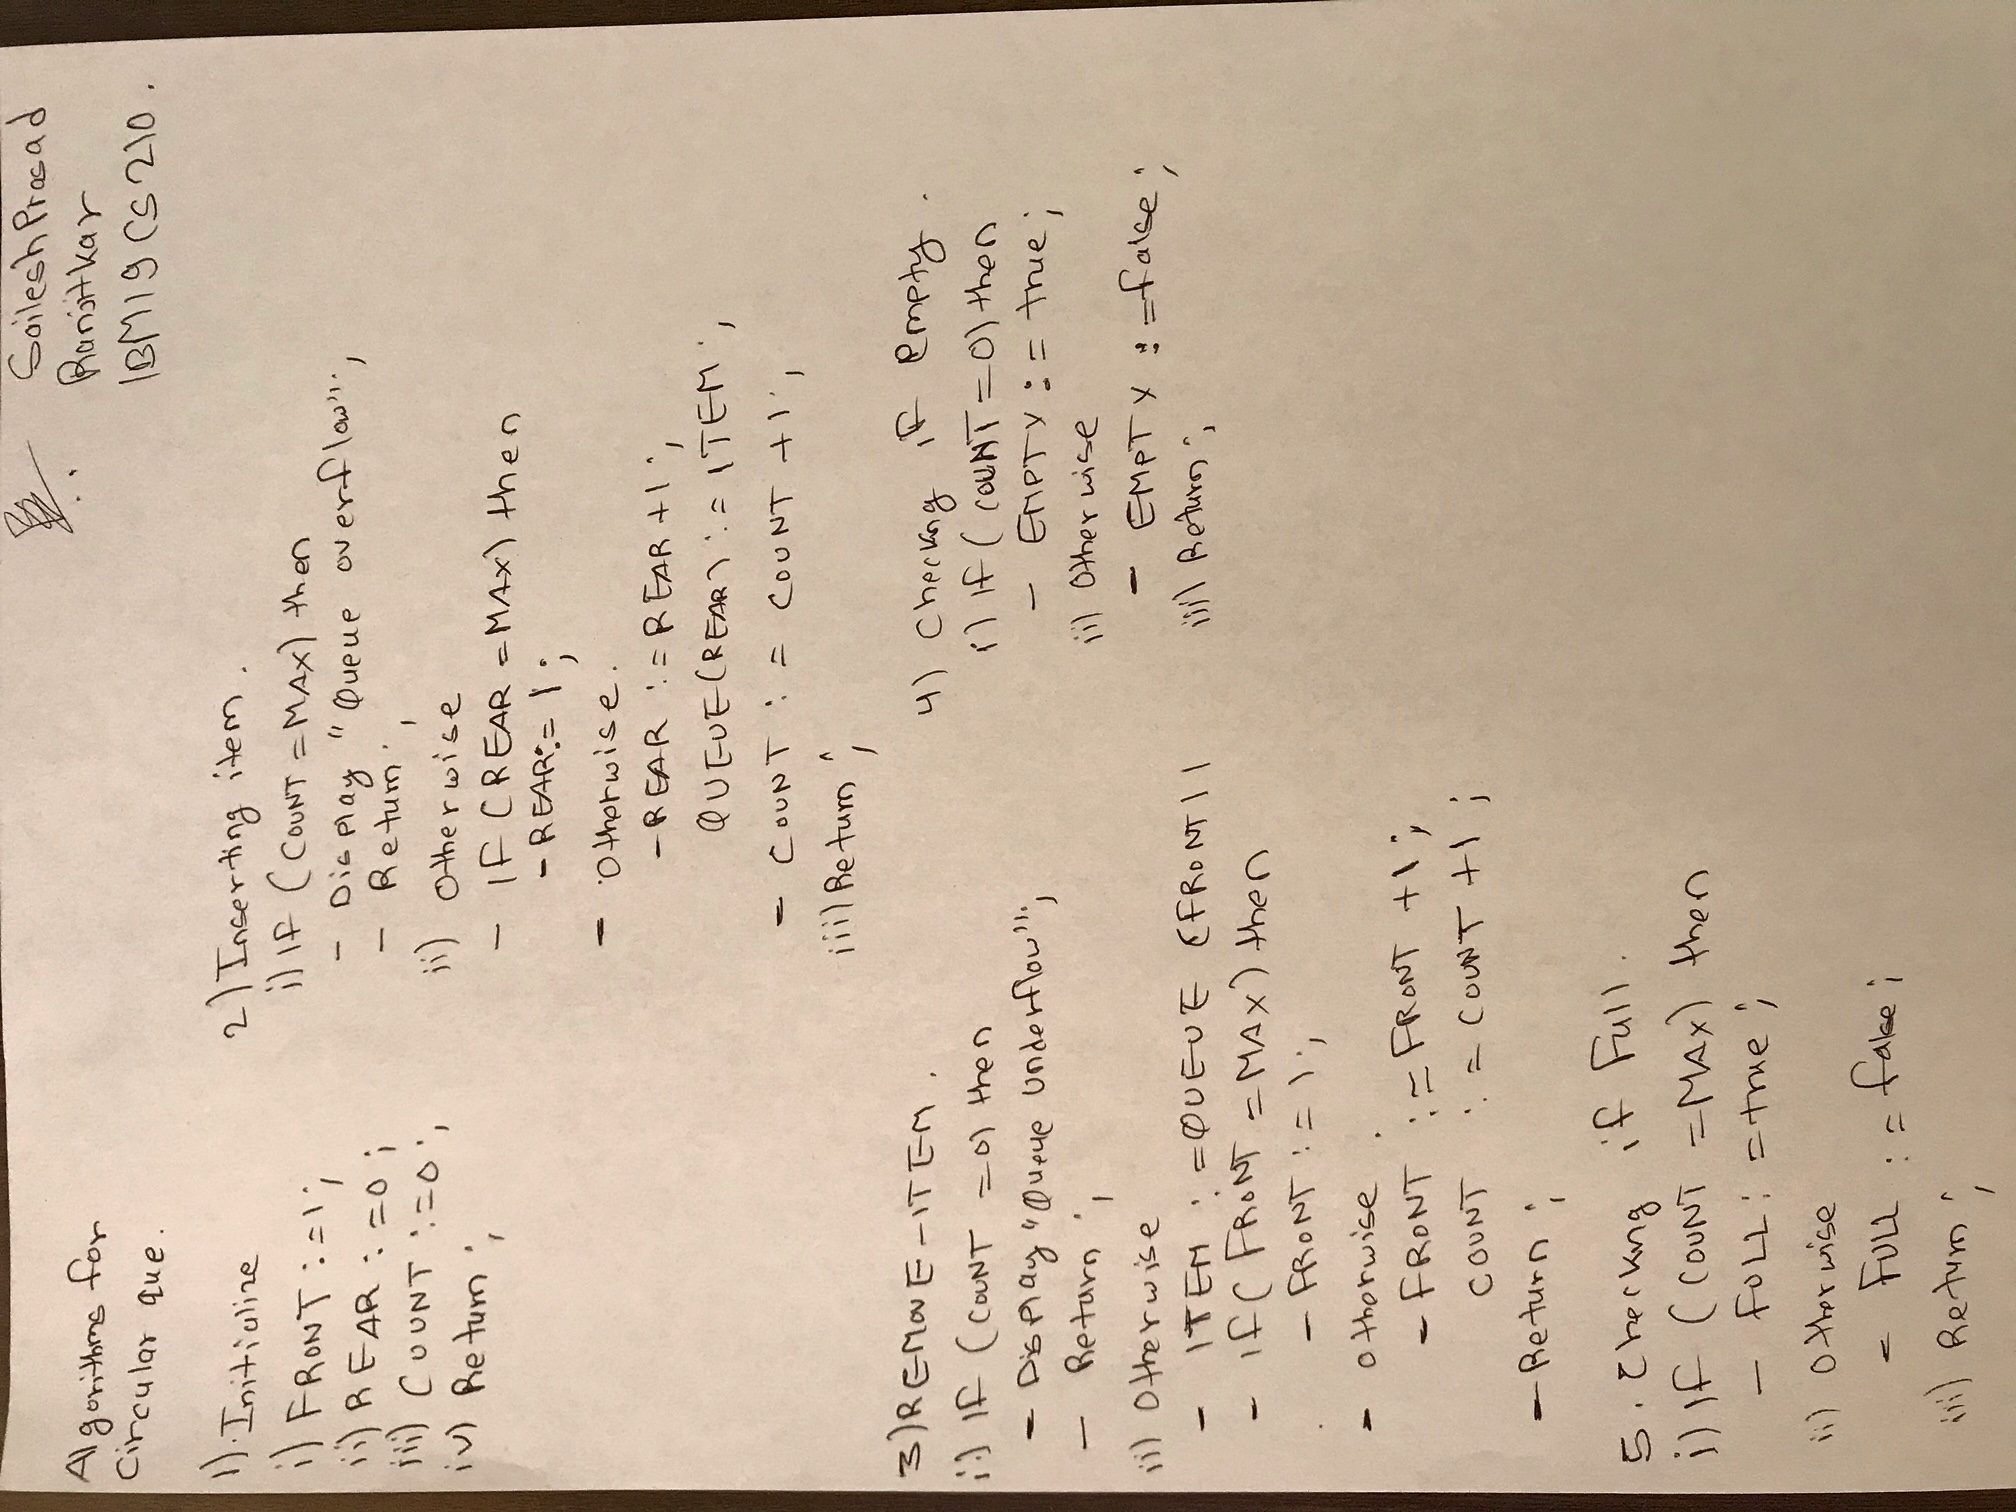 Sailesh Prasad
Ranjitkar
1BM19CS210.
Algorithms for
Circular que.
1). Initialize
i) FRONT :=1;
ii) REAR :=0;
iii) COUNT :=0;
iv) Return;
2) Inserting item.
i) If (COUNT = MAX) then
- Display "Queue overflow";
- Return;
ii) Otherwise
- IF (REAR = MAX) then
- REAR:= 1;
- Otherwise.
- REAR := REAR +1;
QUEUE(REAR) := ITEM;
- COUNT := COUNT +1;
iii) Return;
3) REMOVE-ITEM.
i) If (COUNT =0) then
- Display "Queue Underflow";
- Return;
ii) Otherwise
- ITEM := QUEUE (FRONT))
- If (FRONT = MAX) then
- FRONT := 1;
- otherwise.
- FRONT := FRONT +1;
COUNT := COUNT +1;
- Return;
4) Checkng if empty.
i) If (COUNT=0) then
- EMPTY := true;
ii) Otherwise
- EMPTY := false;
iii) Return;
5. Checkng if Full.
i) If (COUNT = MAX) then
- FULL: =true;
ii) Otherwise
- FULL := false;
iii) Return;